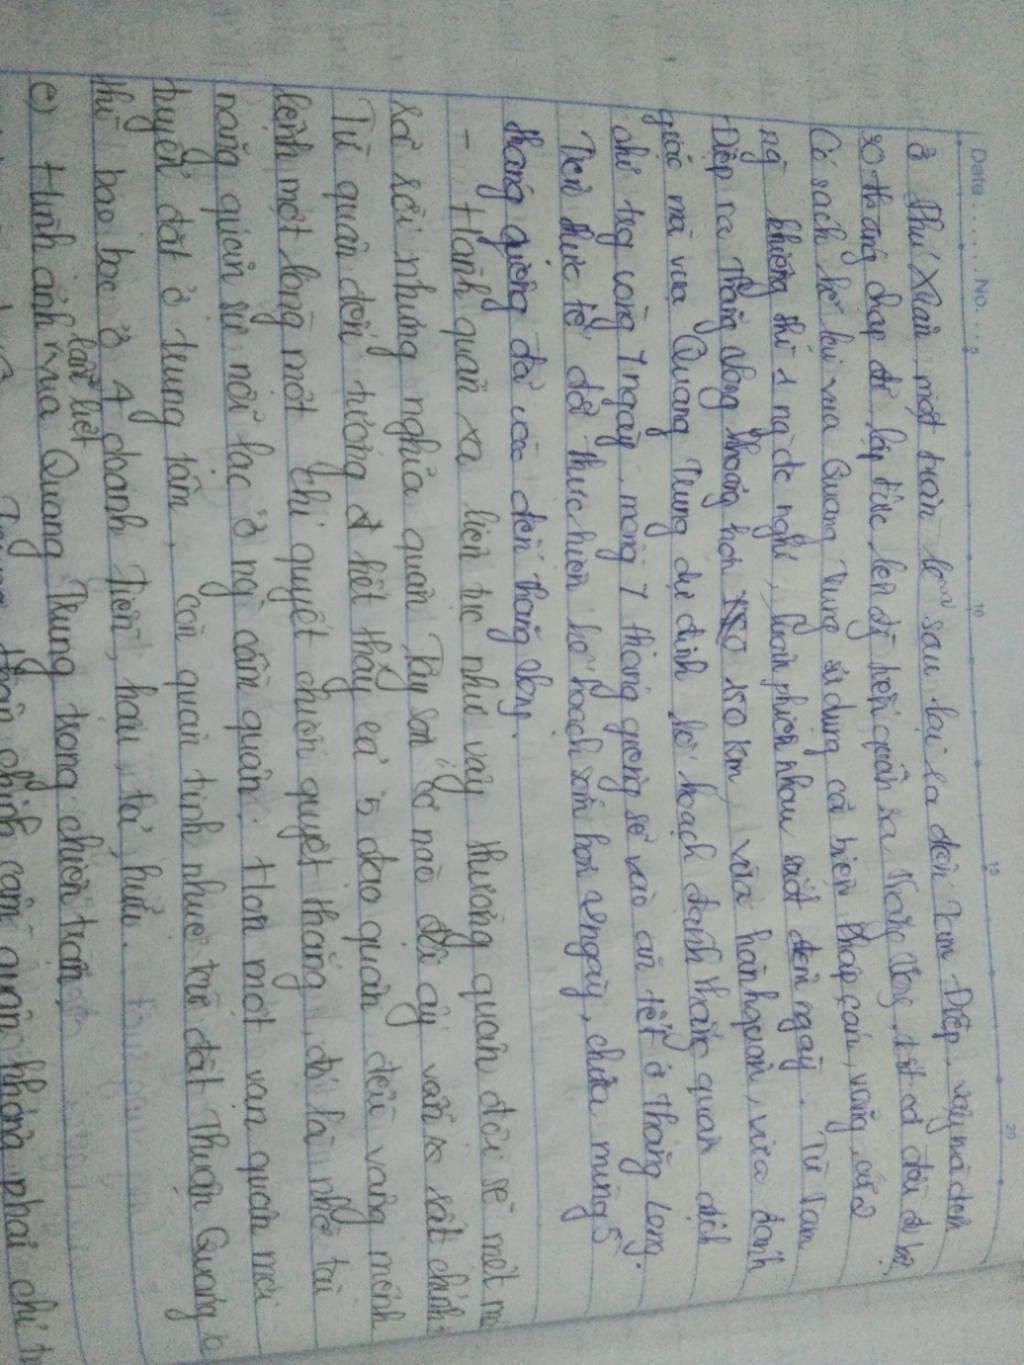 Date ....... No. ...
5 10 15 20
ở Phú Xuân, một tuần lễ sau lại ra đến Tam Điệp, vậy mà đêm
30 tháng chạp đã lập tức lên đg tiến quân ra Thăng Long, tất cả đều đi bộ.
Có sách kể khi vua Quang Trung sử dụng cả biện pháp cáng, võng, cứ 2
ng khiêng thì 1 ng đc nghỉ, luân phiên nhau suốt đêm ngày. Từ Tam
Điệp ra Thăng Long khoảng hơn 150 km, vừa hành quân, vừa đánh
giặc mà vua Quang Trung dự định kế hoạch đánh thắng quân địch
chỉ trg vòng 7 ngày, mồng 7 tháng giêng sẽ vào ăn tết ở Thăng Long.
Trên thực tế đã thực hiện kế hoạch sớm hơn 2 ngày, chưa mùng 5
tháng giêng đã vào đến Thăng Long.
- Hành quân xa liên tục như vậy thường quân đội sẽ mệt mỏi
rã rời nhưng nghĩa quân Tây Sơn cơ nào đội ấy vẫn chỉnh
Từ quân đến tướng hết thảy cả 5 đạo quân đều vâng mệnh
lệnh một lòng một chí quyết chiến quyết thắng, đó là nhờ tài
năng quân sự nổi lạc ở ng cầm quân. Hơn một vạn quân mới
tuyển đặt ở trung tâm, còn quân tinh nhuệ từ đất Thuận Quảng
thì bao bọc ở 4 doanh tiền, hậu, tả, hữu.
lẫm liệt
e) Hình ảnh vua Quang Trung trong chiến trận
thân chinh cầm quân không phải chỉ